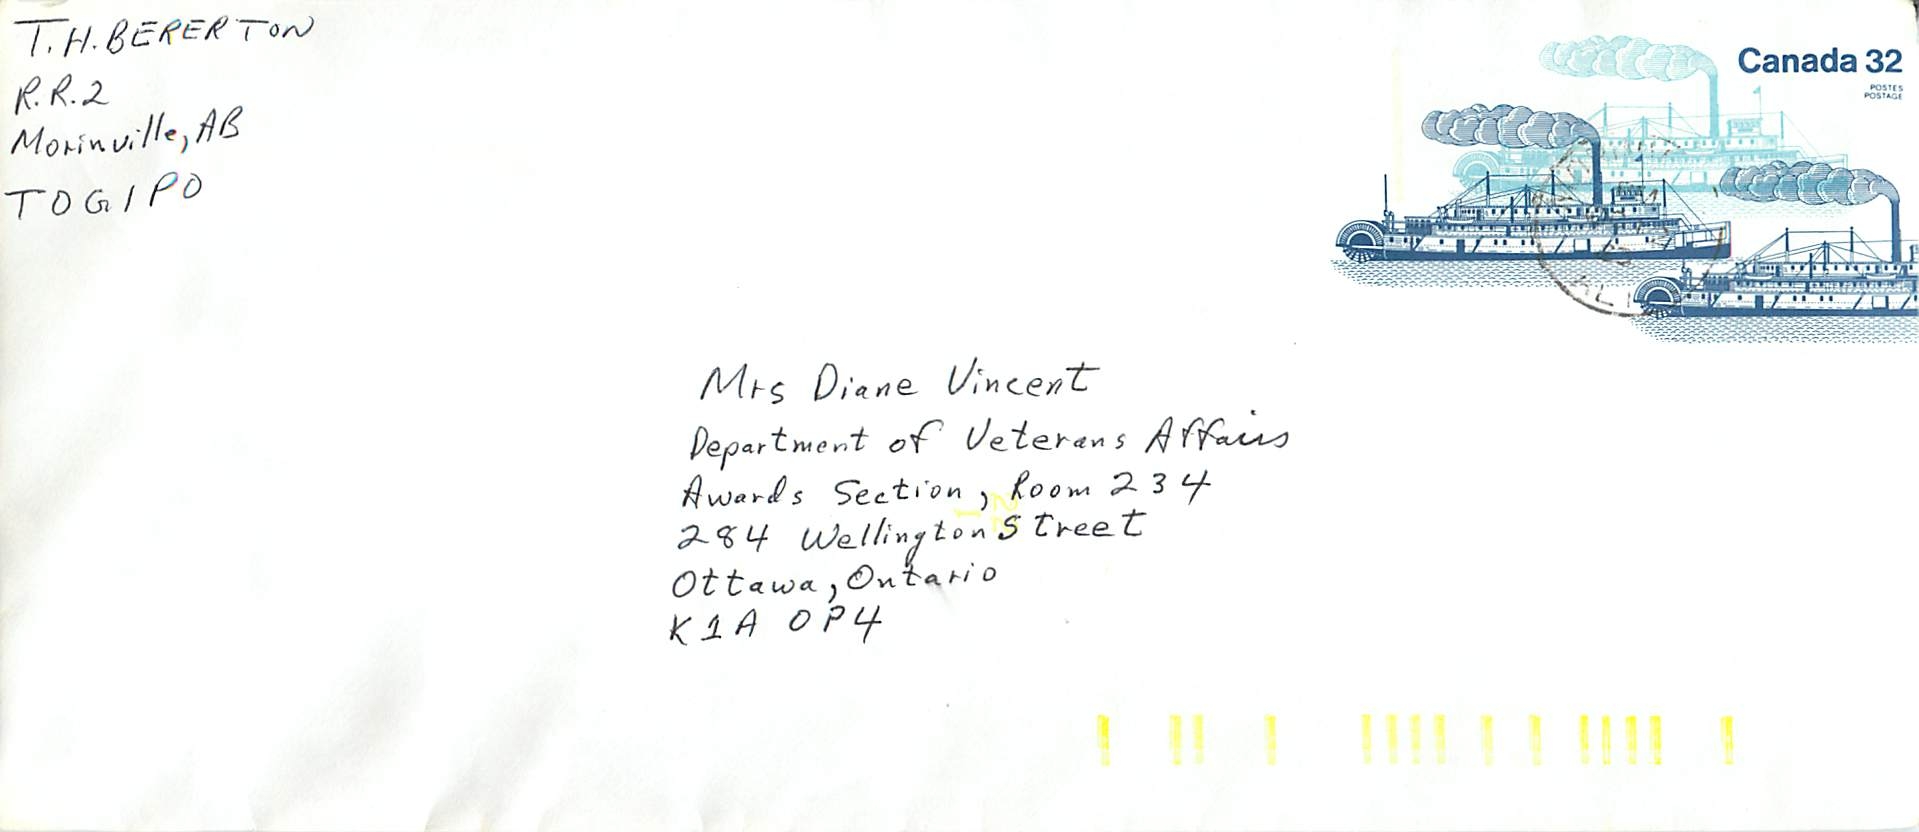 T.H. BERERTON
R.R.2
Morinville, AB
T0G1P0
Canada 32
POSTES
POSTAGE
Mrs Diane Vincent
Department of Veterans Affairs
Awards Section, Room 234
284 Wellington Street
Ottawa, Ontario
K1A 0P4